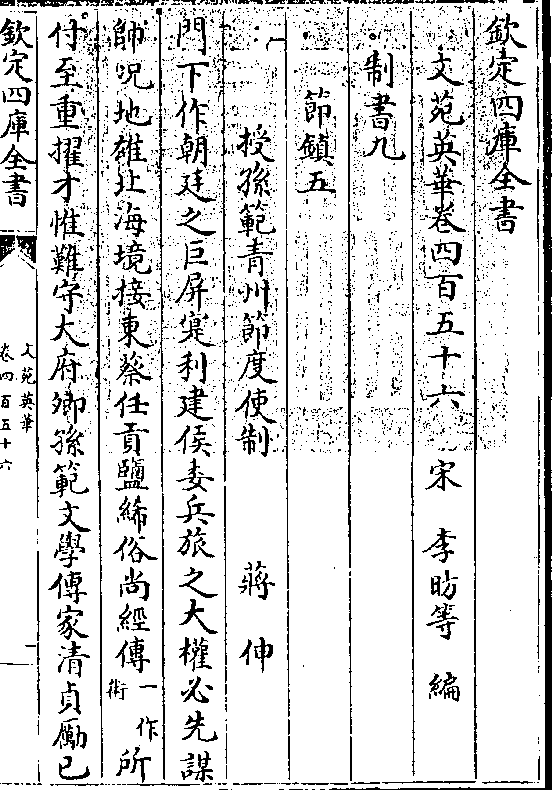 欽定四庫全書
文苑英華卷四百五十六　宋　李昉等　編
制書九
節鎮五
授孫範青州節度使制　蔣伸
門下作朝廷之巨屏寔利建侯委兵旅之大權必先謀
帥況地雄北海境接東蔡任貢鹽絺俗尚經傳一作術所
付至重擢才惟難守大府卿孫範文學傳家清貞勵已
欽定四庫全書
文苑英華
卷四百五十六
一